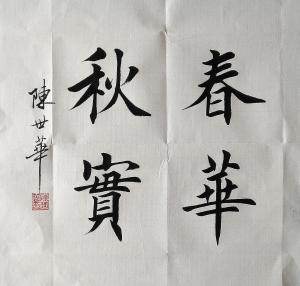 春華
秋實
陳世華